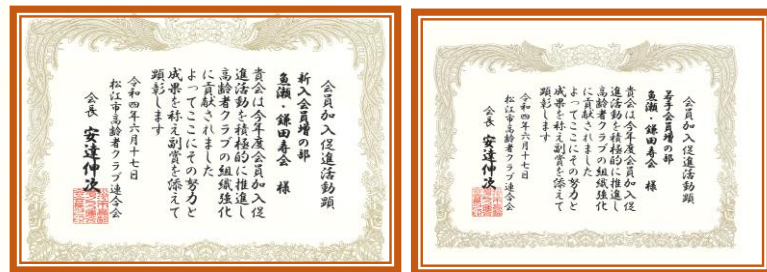 会員加入促進活動顕
新入会員増の部
魚瀬・鎌田寿会 様
貴会は今年度会員加入促
進活動を積極的に推進し
高齢者クラブの組織強化
に貢献されました
よってここにその努力と
成果を称え副賞を添えて
顕彰します
令和四年六月十七日
松江市高齢者クラブ連合会
会長 安達伸次
会員加入促進活動顕
若手会員増の部
魚瀬・鎌田寿会 様
貴会は今年度会員加入促
進活動を積極的に推進し
高齢者クラブの組織強化
に貢献されました
よってここにその努力と
成果を称え副賞を添えて
顕彰します
令和四年六月十七日
松江市高齢者クラブ連合会
会長 安達伸次